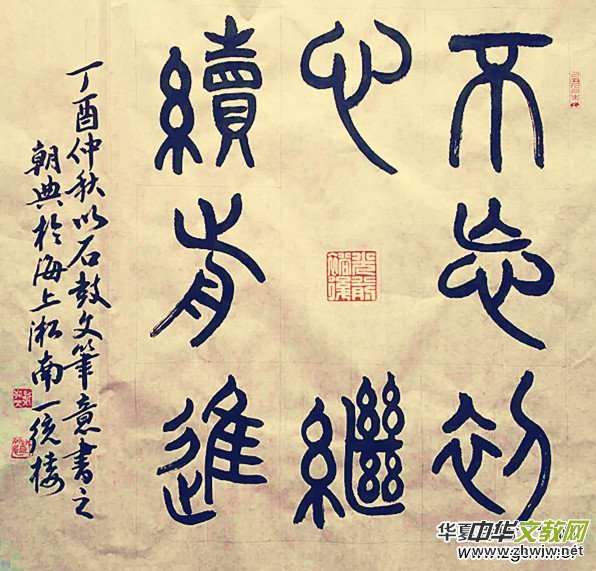 不忘初
心繼
續前進
丁酉仲秋以石鼓文筆意書之
朝典於海上淞南一
华夏
中华文教网
www.zhwjw.net